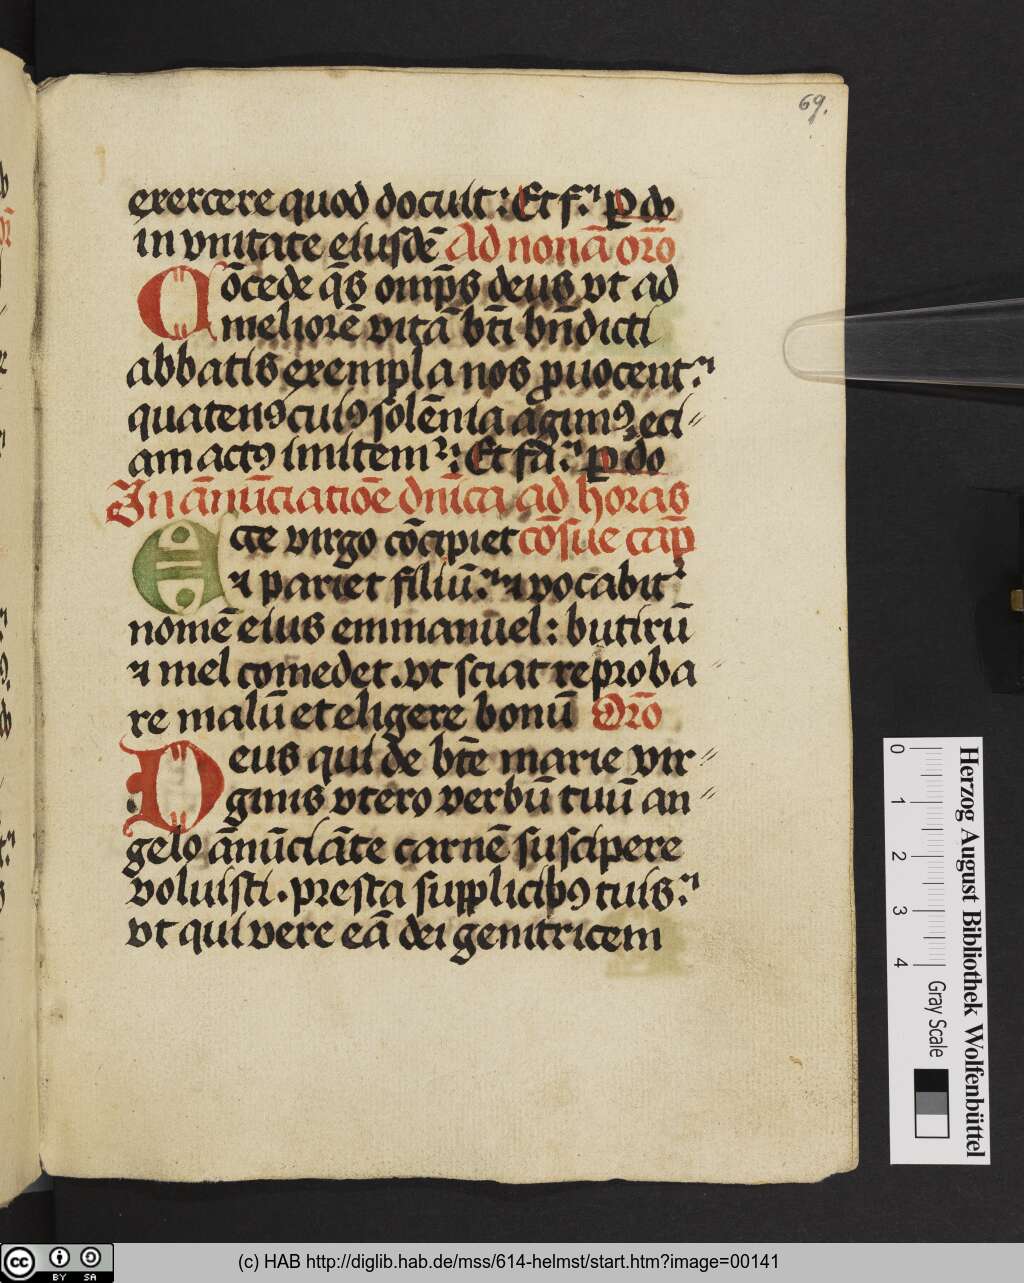 69.
exercere quod docuit: Et f. P do
in vnitate eiusdē Ad nonā orō
Cōcede q̄s omp̄s deus vt ad
meliorē vitā bt̄i bn̄dicti
abbatis exempla nos ꝓuocent.
quatenꝰ cuiꝰ solēnia agimꝰ eci〃
am actꝰ imitemᷣ: Et fa. P do
In ānūciatiōe dn̄ica ad horas
Ecce virgo cōcipiet cōsue cap̄
⁊ pariet filiū. ⁊ vocabit᷑
nomē eius emmanūel: butirū
⁊ mel comedet. vt sciat reproba〃
re malū et eligere bonū Orō
Deus qui de bt̄e marie vir〃
ginis vtero verbū tuū an〃
gelo ānūciāte carnē suscipere
voluisti. presta supplicibꝰ tuis.
vt qui vere eā dei genitricem
0 1 2 3 4
Gray Scale
Herzog August Bibliothek Wolfenbüttel
cc BY SA
(c) HAB http://diglib.hab.de/mss/614-helmst/start.htm?image=00141